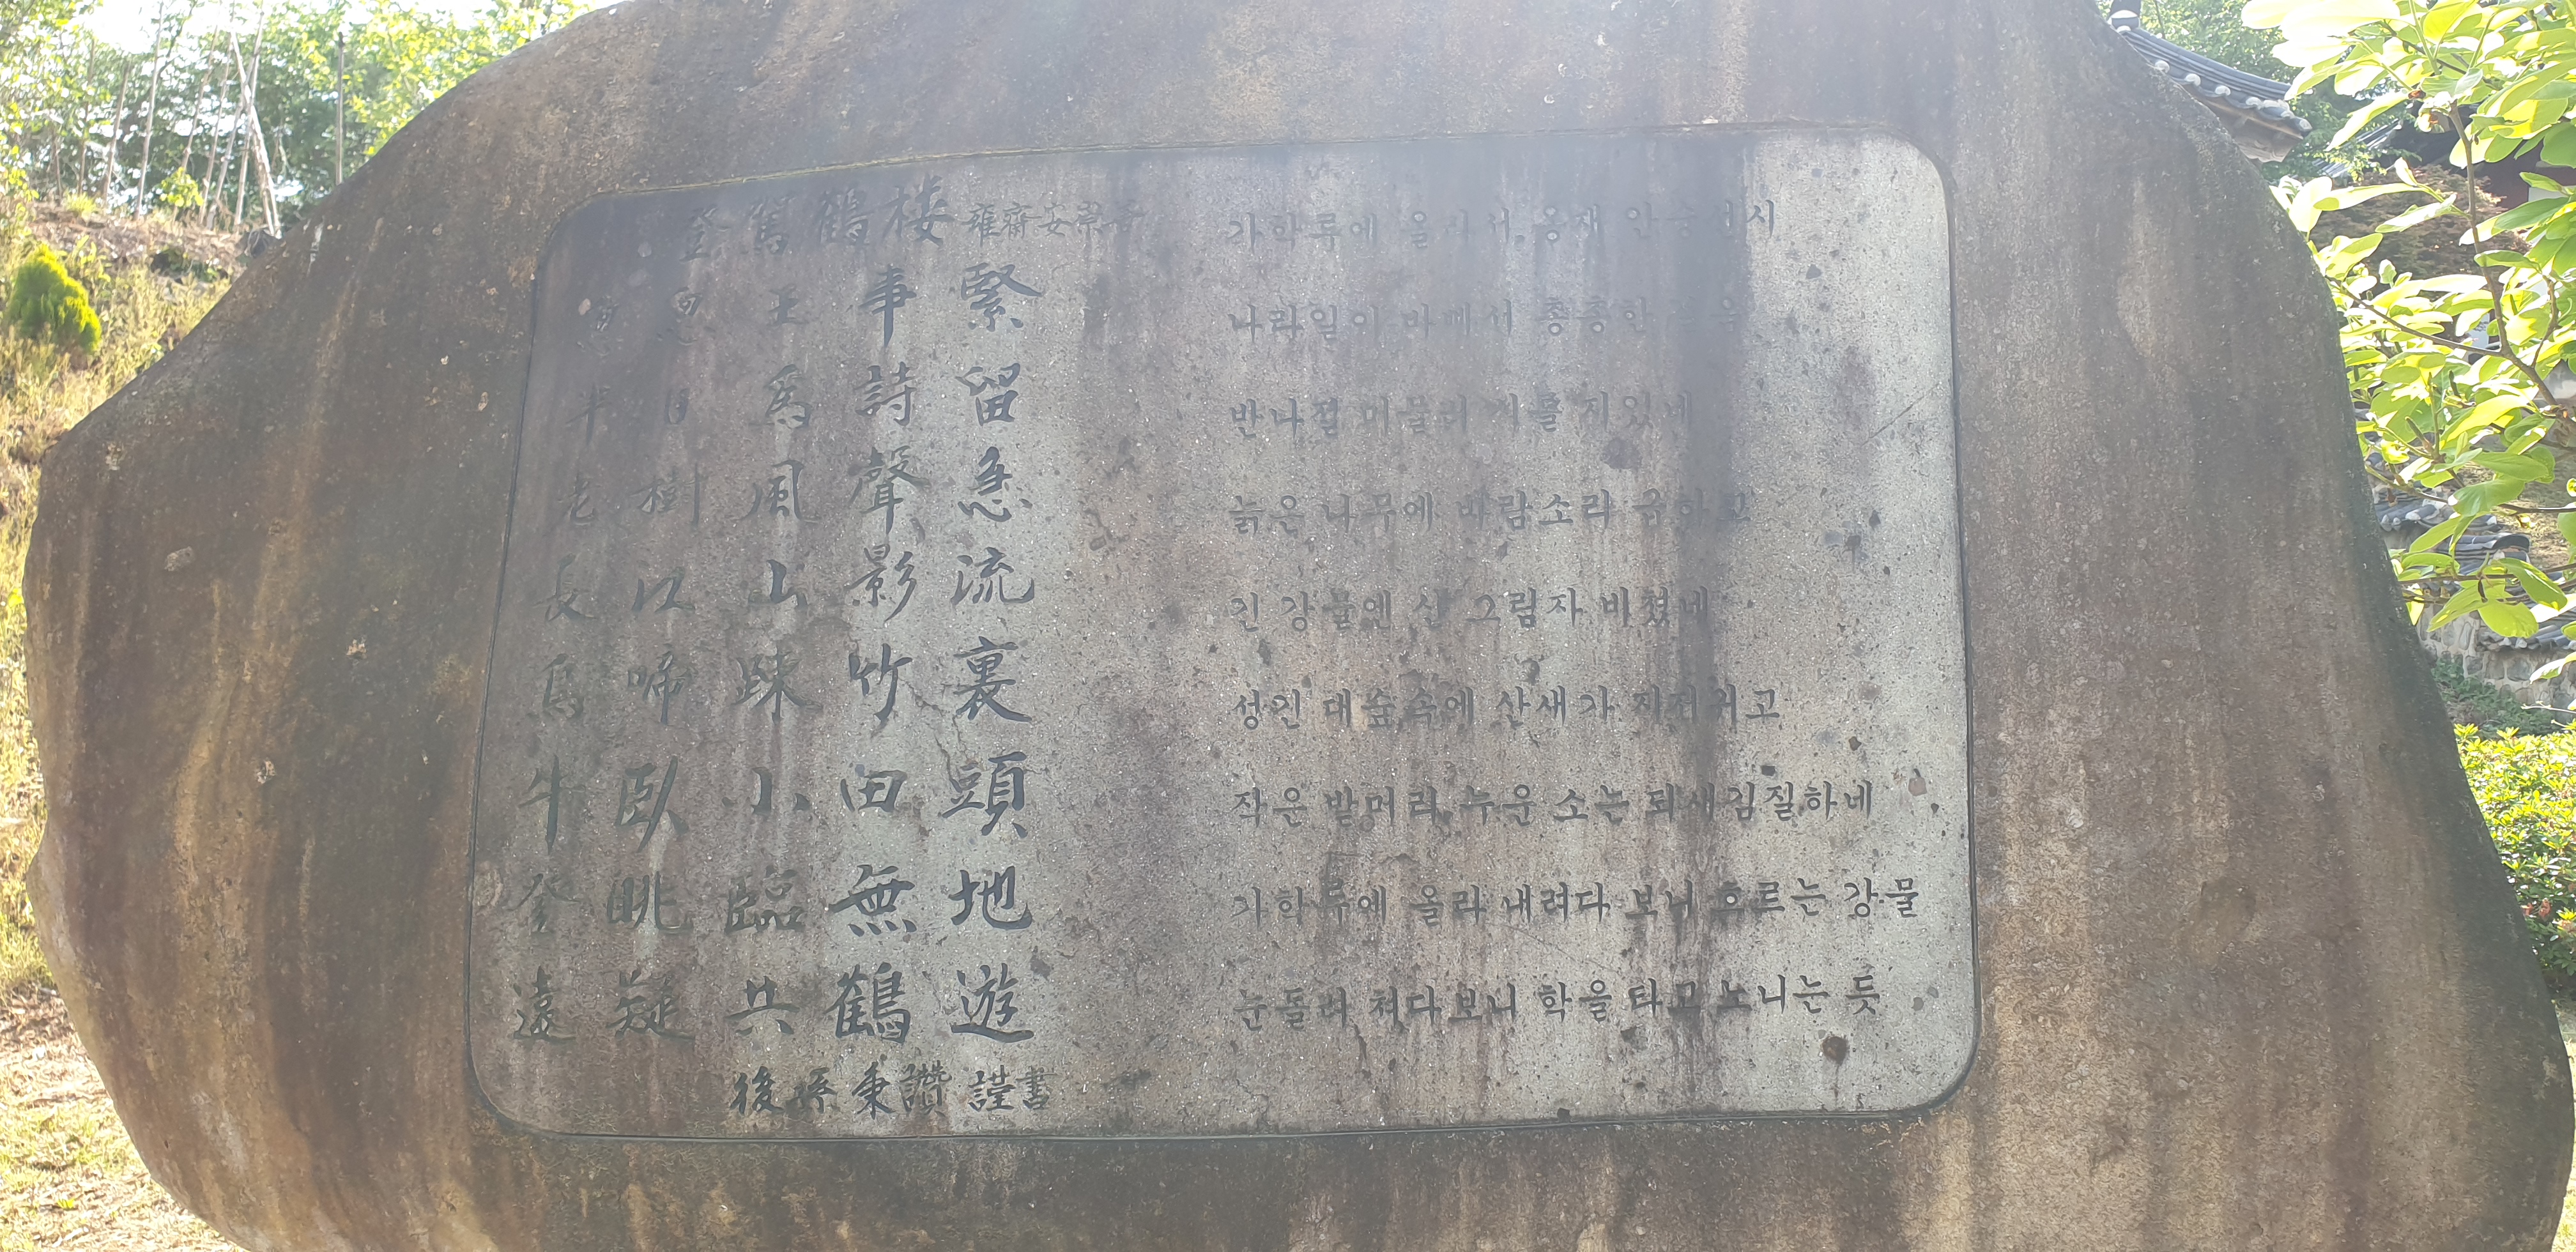 登駕鶴楼 雍齋安崇善
怱怱王事緊
半日爲詩留
老樹風聲急
長江山影流
鳥啼踈竹裏
牛臥小田頭
登眺臨無地
遠疑共鶴遊
後孫秉讚 謹書
가학루에 올라서, 옹재 안숭선 시
나라일이 총총한
반나절 머물러 시를 지었네
늙은 나무에 바람소리 급하고
긴 강물엔 산 그림자 비쳤네
성긴 대숲속에 산새가 지저귀고
작은 밭머리 누운 소는 되새김질하네
가학루에 올라 내려다 보니 흐르는 강물
눈돌려 쳐다보니 학을 타고 노니는 듯